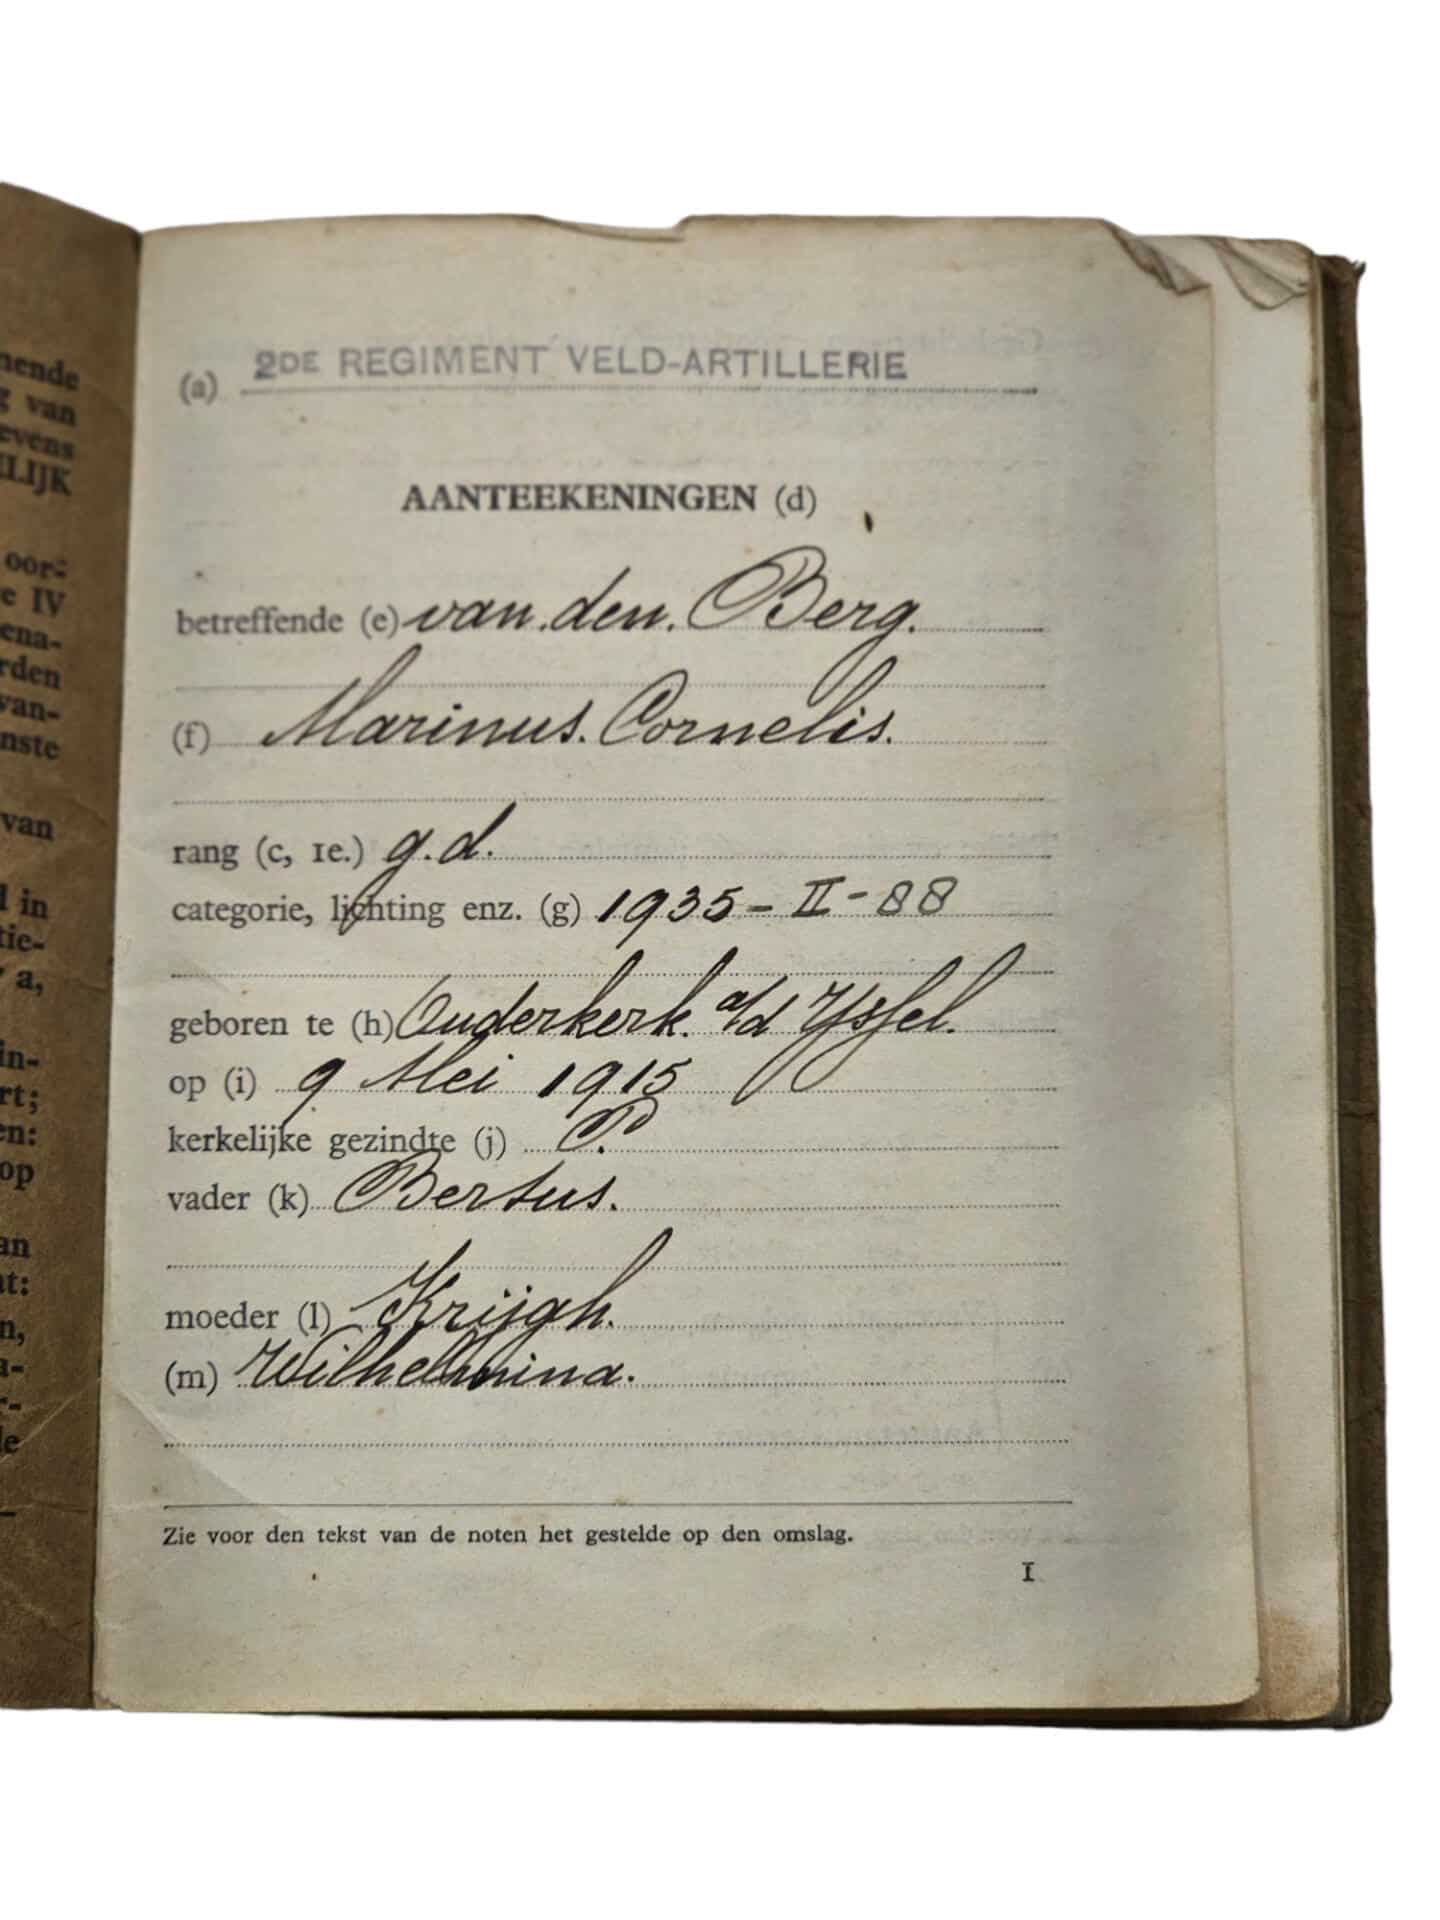 nende
g van
evens
ILIJK
oor-
e IV
ena-
rden
van-
nste
van
l in
tie-
r a,
in-
rt;
en:
op
an
at:
n,
a-
r-
le
(a) 2DE REGIMENT VELD-ARTILLERIE
AANTEEKENINGEN (d)
betreffende (e) van den Berg.
(f) Marinus. Cornelis.
rang (c, 1e.) g.d.
categorie, lichting enz. (g) 1935 - II - 88
geboren te (h) Ouderkerk a/d IJssel.
op (i) 9 Mei 1915
kerkelijke gezindte (j) P.
vader (k) Bertus.
moeder (l) Krijgh.
(m) Wilhelmina.
Zie voor den tekst van de noten het gestelde op den omslag.
I